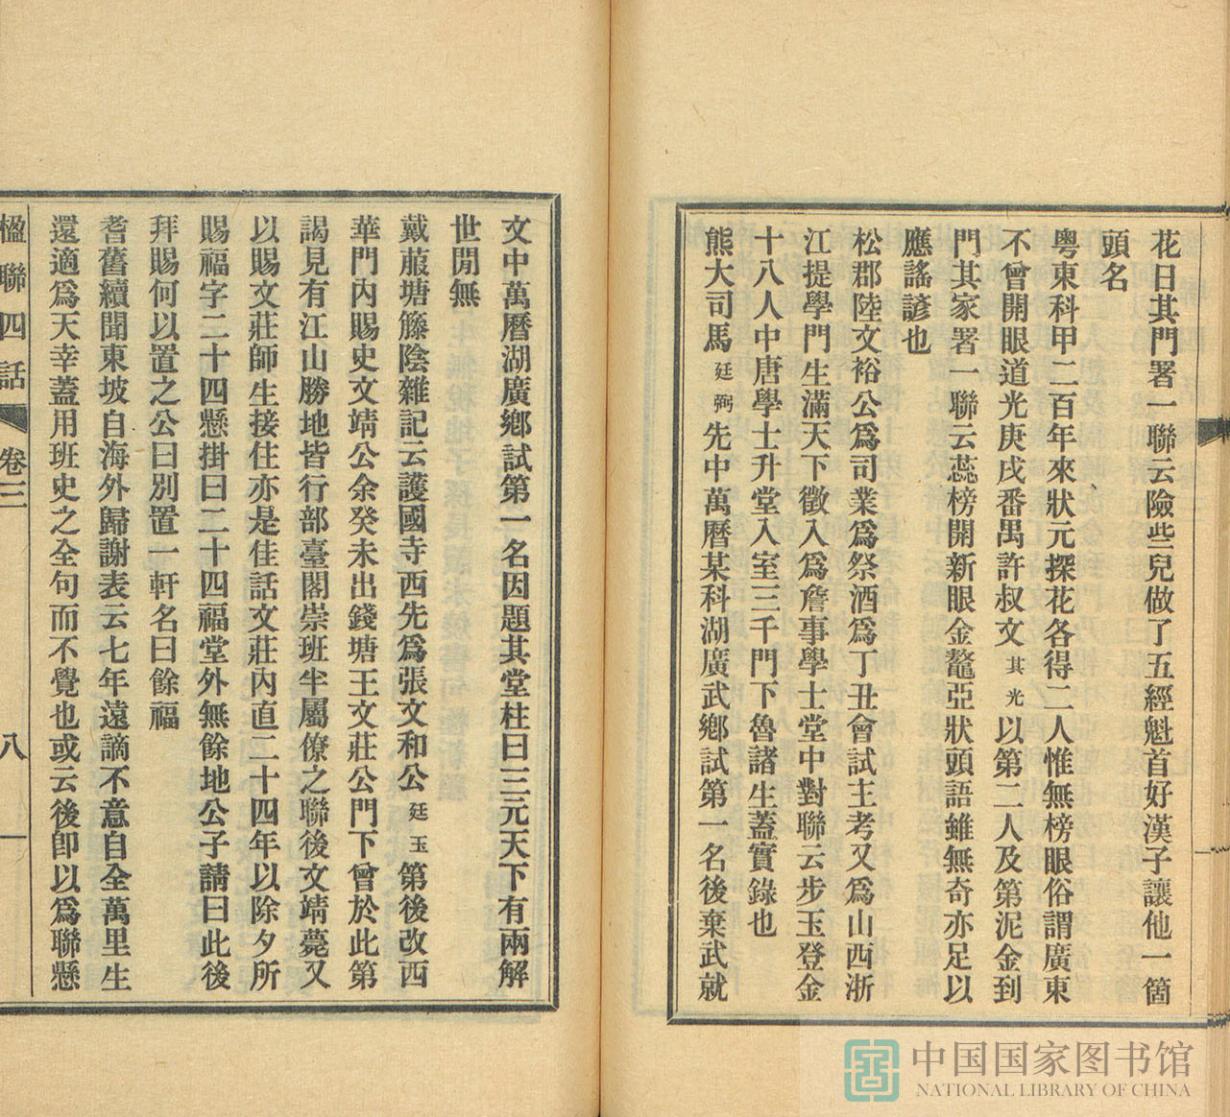 花日其門署一聯云險些兒做了五經魁首好漢子讓他一箇
頭名
粵東科甲二百年來狀元探花各得二人惟無榜眼俗謂廣東
不曾開眼道光庚戌番禺許叔文其光以第二人及第泥金到
門其家署一聯云蕊榜開新眼金鼇亞狀頭語雖無奇亦足以
應謠諺也
松郡陸文裕公爲司業爲祭酒爲丁丑會試主考又爲山西浙
江提學門生滿天下徵入爲詹事學士堂中對聯云步玉登金
十八人中唐學士升堂入室三千門下魯諸生蓋實錄也
熊大司馬廷弼先中萬曆某科湖廣武鄉試第一名後棄武就
文中萬曆湖廣鄉試第一名因題其堂柱曰三元天下有兩解
世閒無
戴菔塘籐陰雜記云護國寺西先爲張文和公廷玉第後改西
華門內賜史文靖公余癸未出錢塘王文莊公門下曾於此第
謁見有江山勝地皆行部臺閣崇班半屬僚之聯後文靖薨又
以賜文莊師生接住亦是佳話文莊內直二十四年以除夕所
賜福字二十四懸掛曰二十四福堂外無餘地公子請曰此後
拜賜何以置之公曰別置一軒名曰餘福
耆舊續聞東坡自海外歸謝表云七年遠謫不意自全萬里生
還適爲天幸蓋用班史之全句而不覺也或云後卽以爲聯懸
楹聯四話 卷三 八
中国国家图书馆
NATIONAL LIBRARY OF CHINA